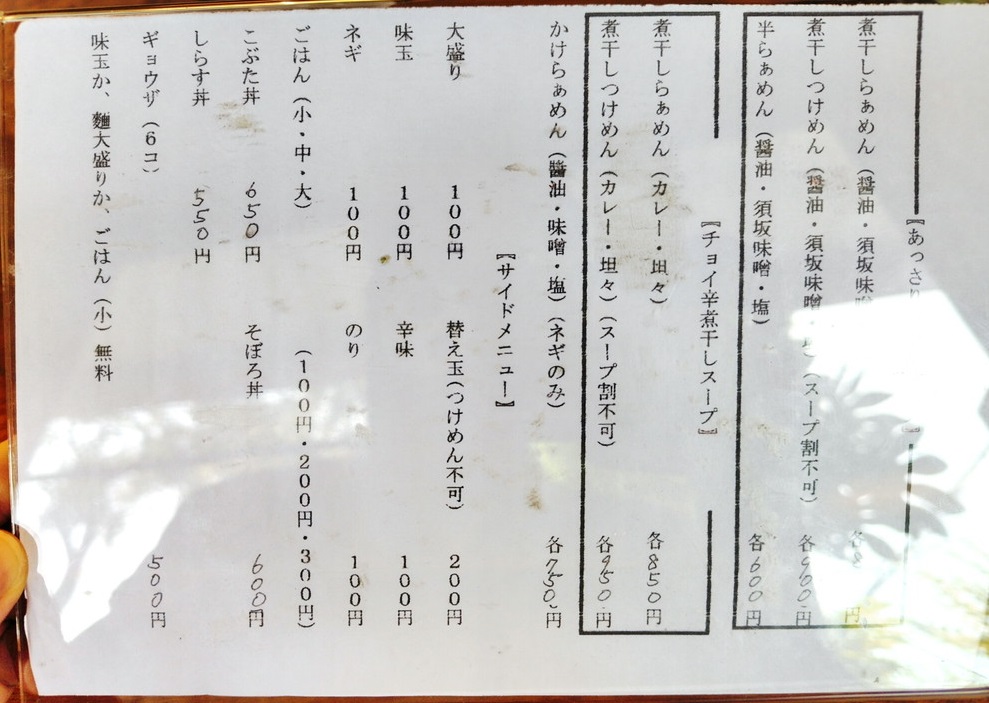 【あっさり
煮干しらぁめん（醤油・須坂味噌
煮干しつけめん（醤油・須坂味噌 （スープ割不可） 各900円
半らぁめん（醤油・須坂味噌・塩） 各600円
【チョイ辛煮干しスープ】
煮干しらぁめん（カレー・坦々） 各850円
煮干しつけめん（カレー・坦々）（スープ割不可） 各950円
かけらぁめん（醤油・味噌・塩）（ネギのみ） 各750円
【サイドメニュー】
大盛り 100円 替え玉（つけめん不可） 200円
味玉 100円 辛味 100円
ネギ 100円 のり 100円
ごはん（小・中・大） （100円・200円・300円）
こぶた丼 650円 そぼろ丼 600円
しらす丼 550円
ギョウザ（6コ） 500円
味玉か、麺大盛りか、ごはん（小）無料